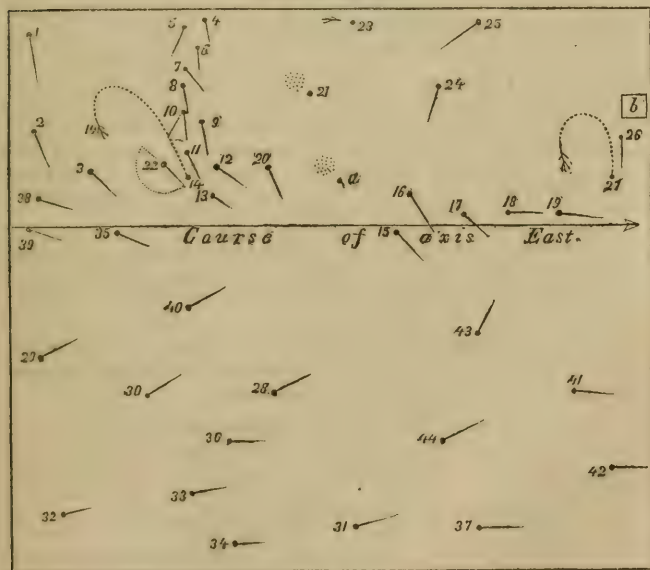 1
5
4
23
25
6
7
8
21
24
b
10
9
2
26
22
11
12
20
a
3
14
27
13
16
38
17
18
19
39
35
Caurse of axis East.
15
40
43
29
30
28
41
36
44
42
33
32
34
31
37